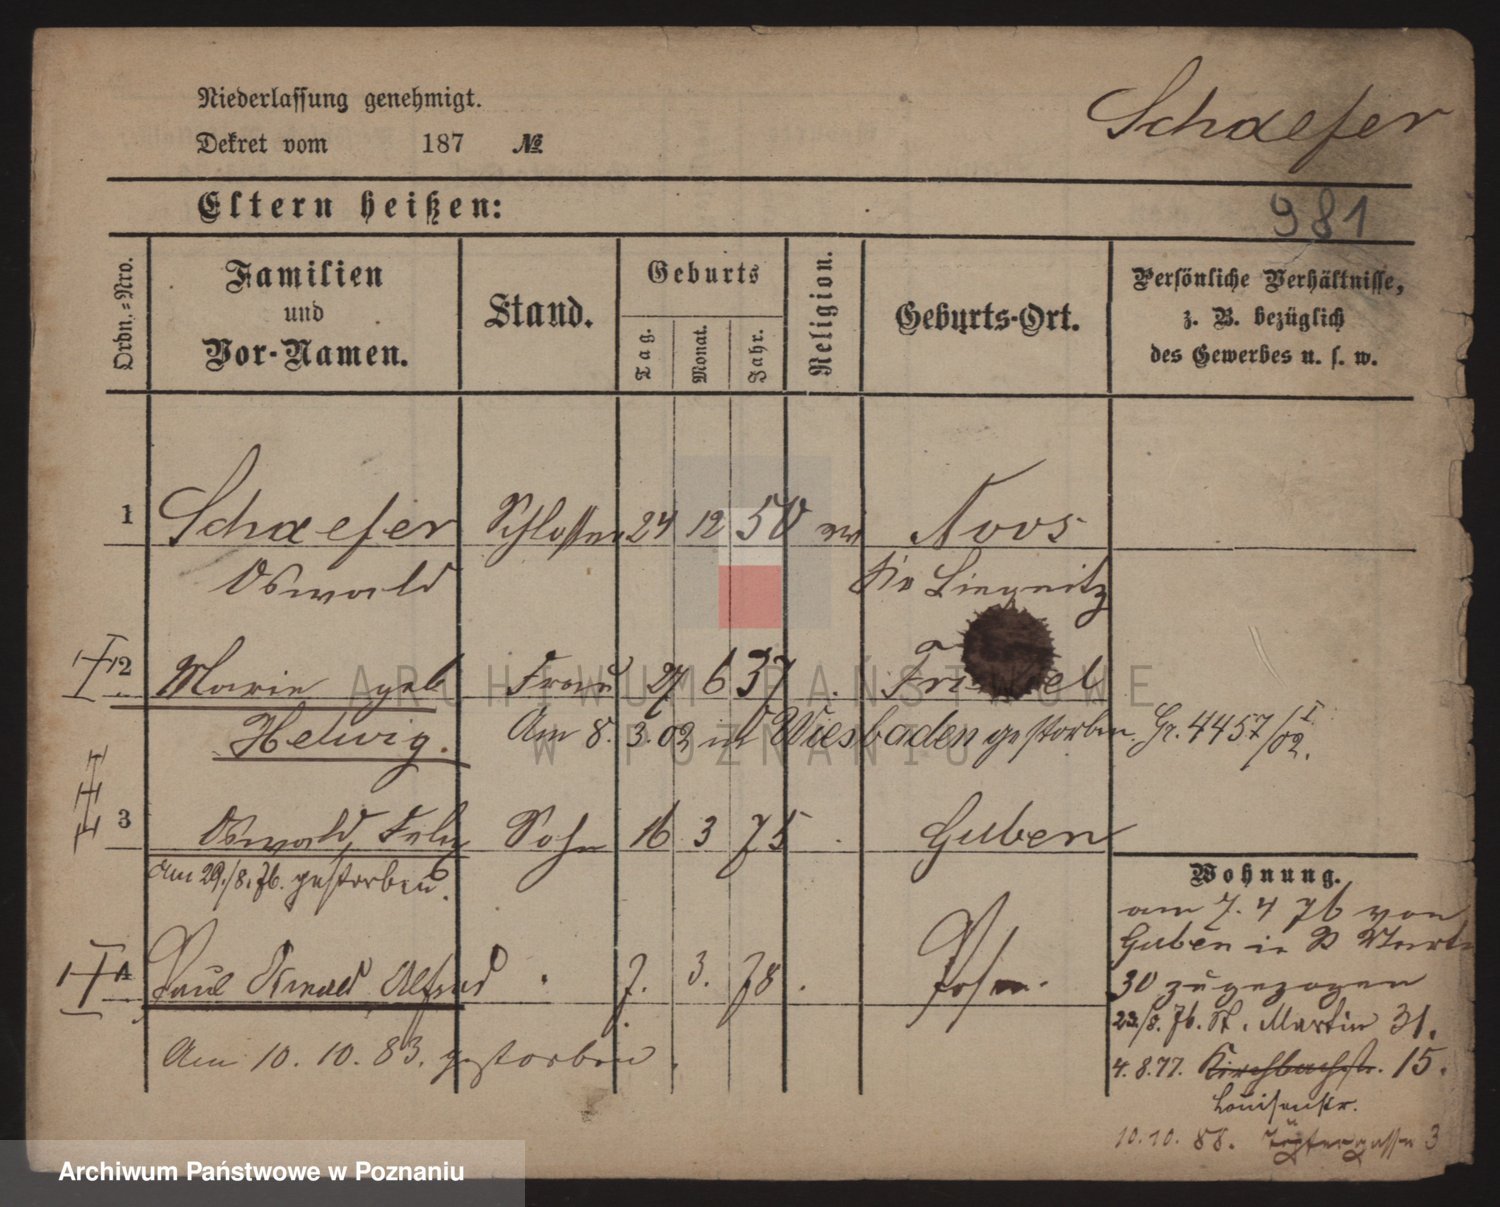 Niederlassung genehmigt.
Schaefer
Dekret vom 187 №
Eltern heißen:
981
Ordn.-Nro.
Familien
und
Vor-Namen.
Stand.
Geburts
Tag.
Monat.
Jahr.
Religion.
Geburts-Ort.
Persönliche Verhältnisse,
z. B. bezüglich
des Gewerbes u. s. w.
1 Schaefer Schlosser 24 12 50 Noos
Oswald Liegnitz
2 Marie geb Frau 27 6 37
Helwig. Am 8. 3. 02 in Wiesbaden gestorben. Gr. 4457/I 02.
3 Oswald, Felix Sohn 16 3 75 Guben
Am 29./8. 76. gestorben.
Wohnung.
am 7. 4 76 von
Guben in
30 zugezogen
4 Paul Oswald Alfred 7. 3. 78 Posen.
23./8. 76. St. Martin 31.
Am 10. 10. 83. gestorben.
4. 8. 77. Kirchbachstr. 15.
Louisenstr.
10. 10. 88. Töpfergasse 3
ARCHIWUM PAŃSTWOWE
W POZNANIU
Archiwum Państwowe w Poznaniu